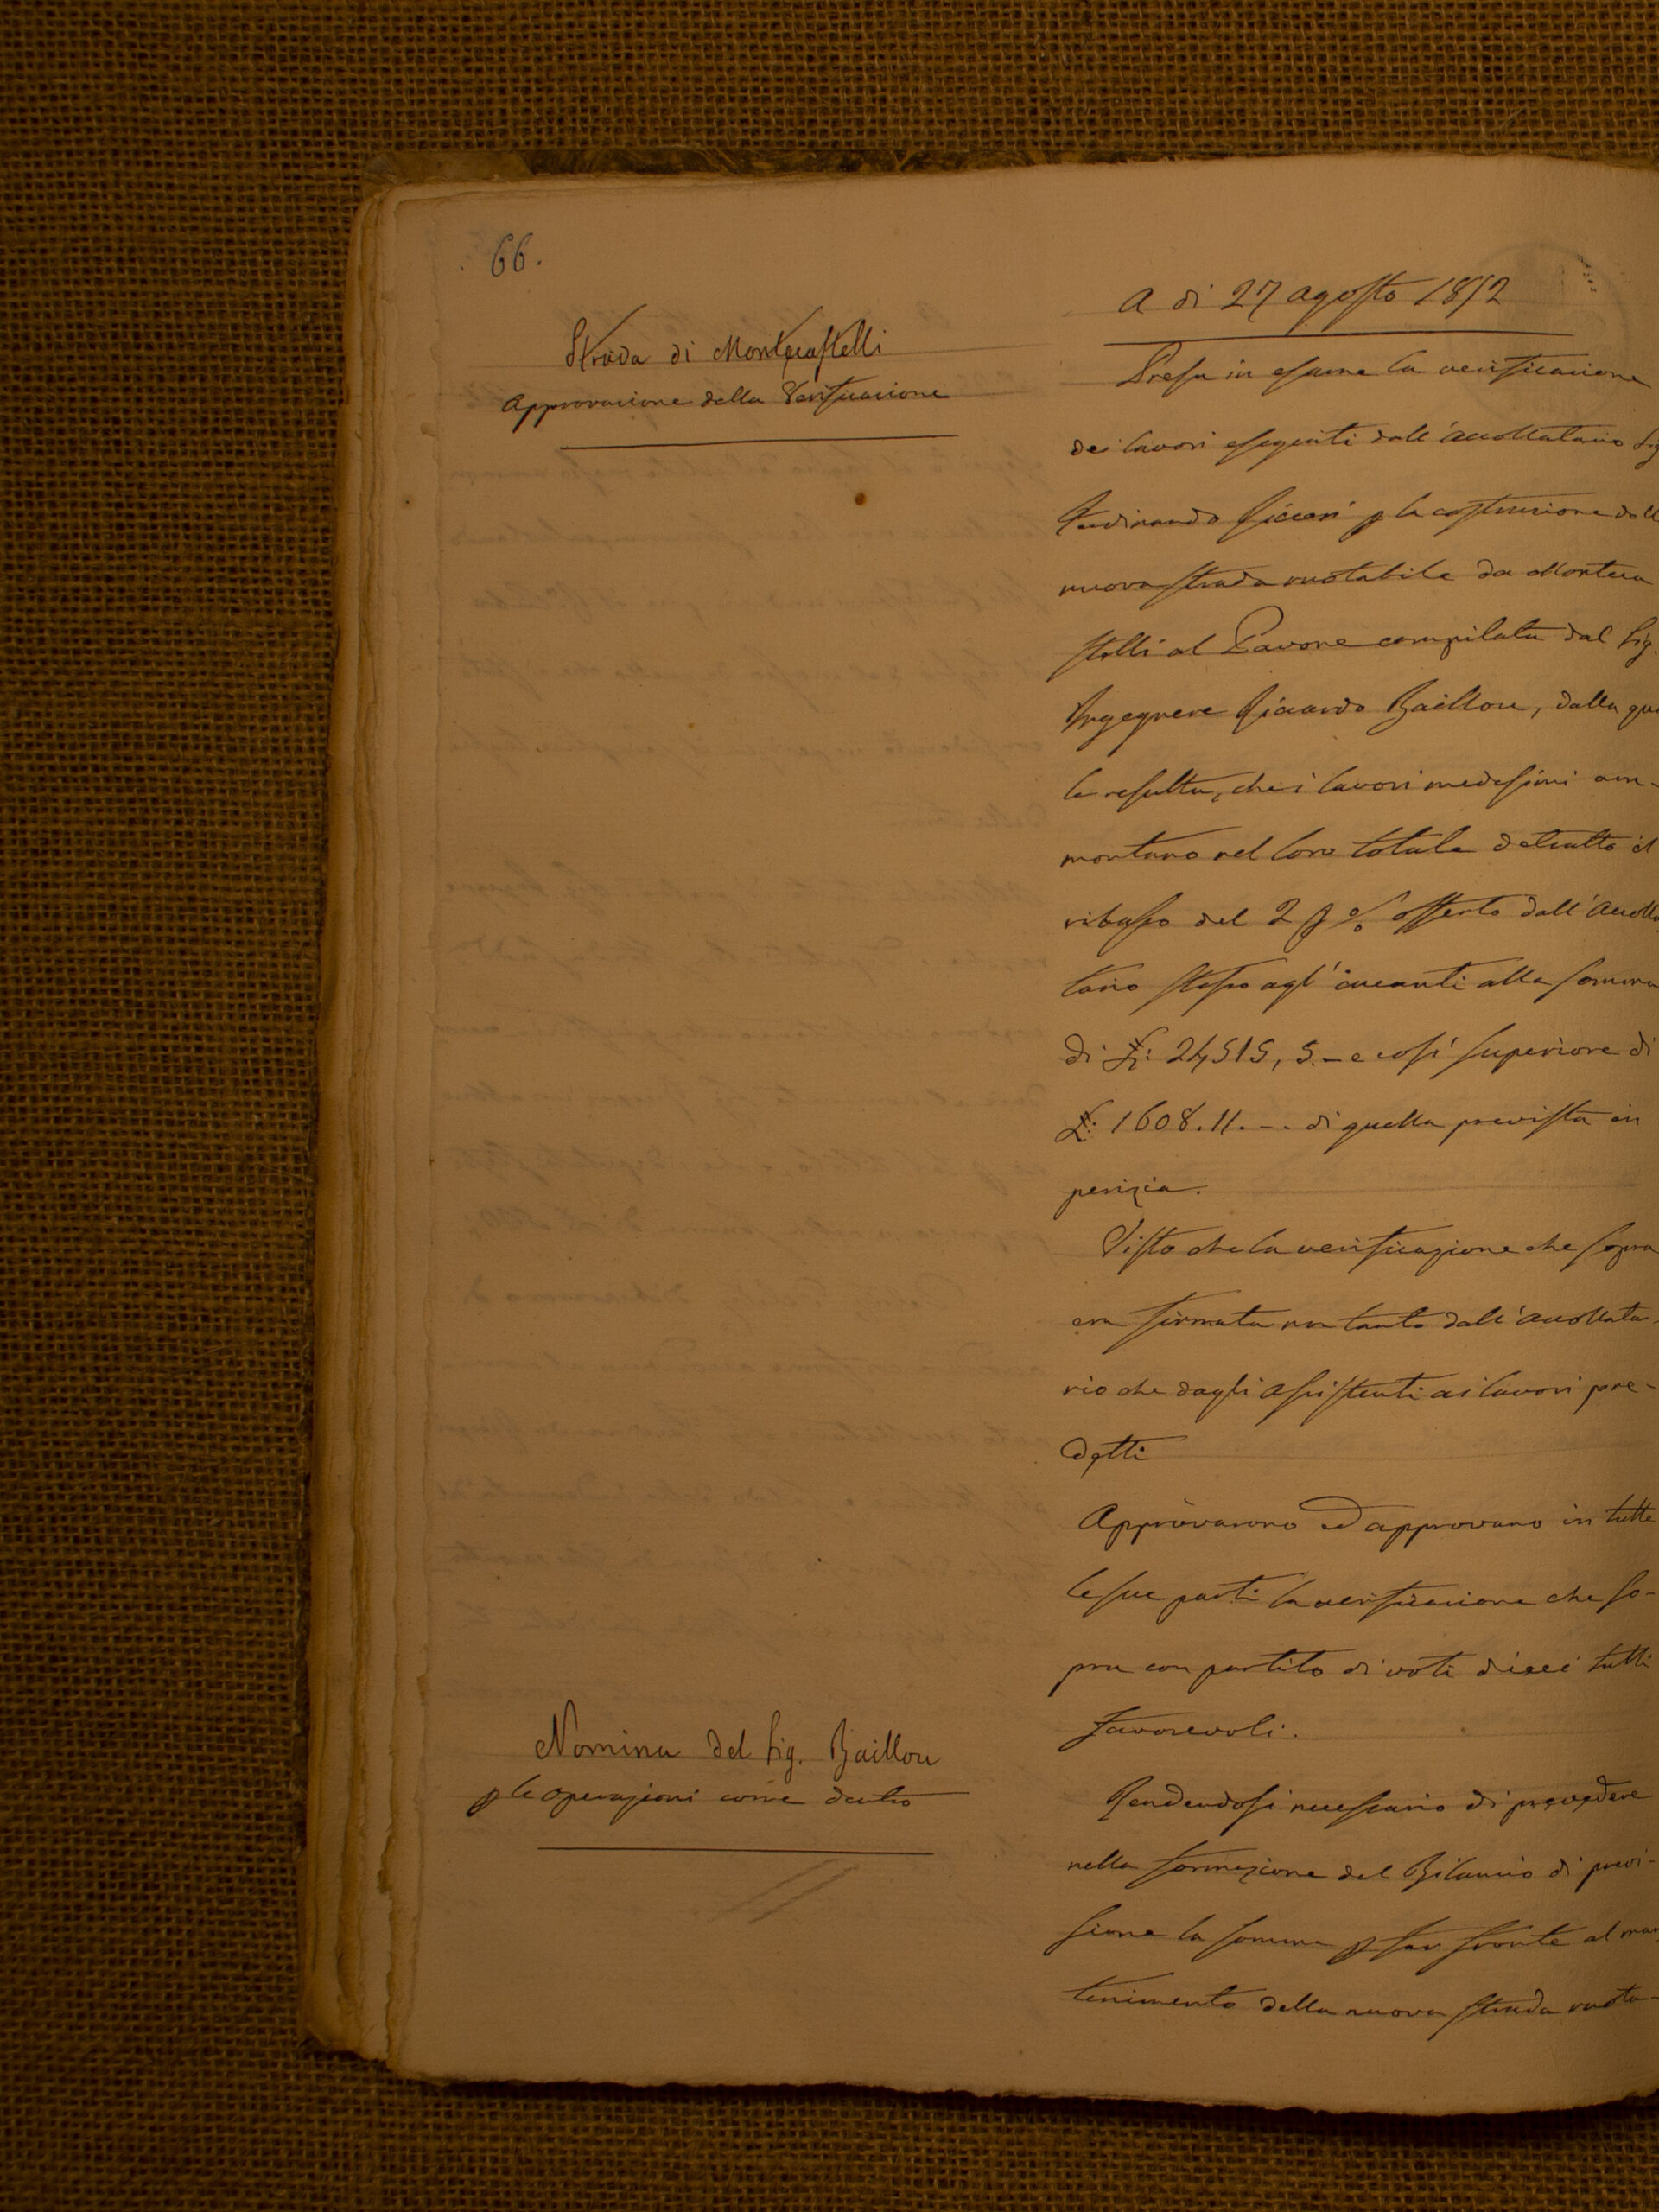 66.
Strada di Montecastelli
Approvazione della Verificazione
A di 27 agosto 1852
Presa in esame la verificazione
dei lavori eseguiti dall'accollatario Sig
Ferdinando Ricceri p la costruzione dell
nuova strada ruotabile da Monteca
stelli al Pavone compilata dal Sig.
Ingegnere Riccardo Baillou, dalla qua
le resulta, che i lavori medesimi am-
montano nel loro totale detratto il
ribasso del 2 p % offerto dall'accolla
tario stesso agl'incanti alla somma
di £: 24515, 5.- e così superiore di
£: 1608.11.-. di quella prevista in
perizia.
Visto che la verificazione che sopra
era firmata non tanto dall'accollata-
rio che dagli assistenti ai lavori pre-
detti
Approvarono ed approvano in tutte
le sue parti la verificazione che so-
pra con partito di voti dieci tutti
favorevoli.
Nomina del Sig. Baillou
p le operazioni come dentro
Rendendosi necessario di prevedere
nella formazione del Bilancio di previ-
sione la somma p far fronte al man
tenimento della nuova strada ruota-